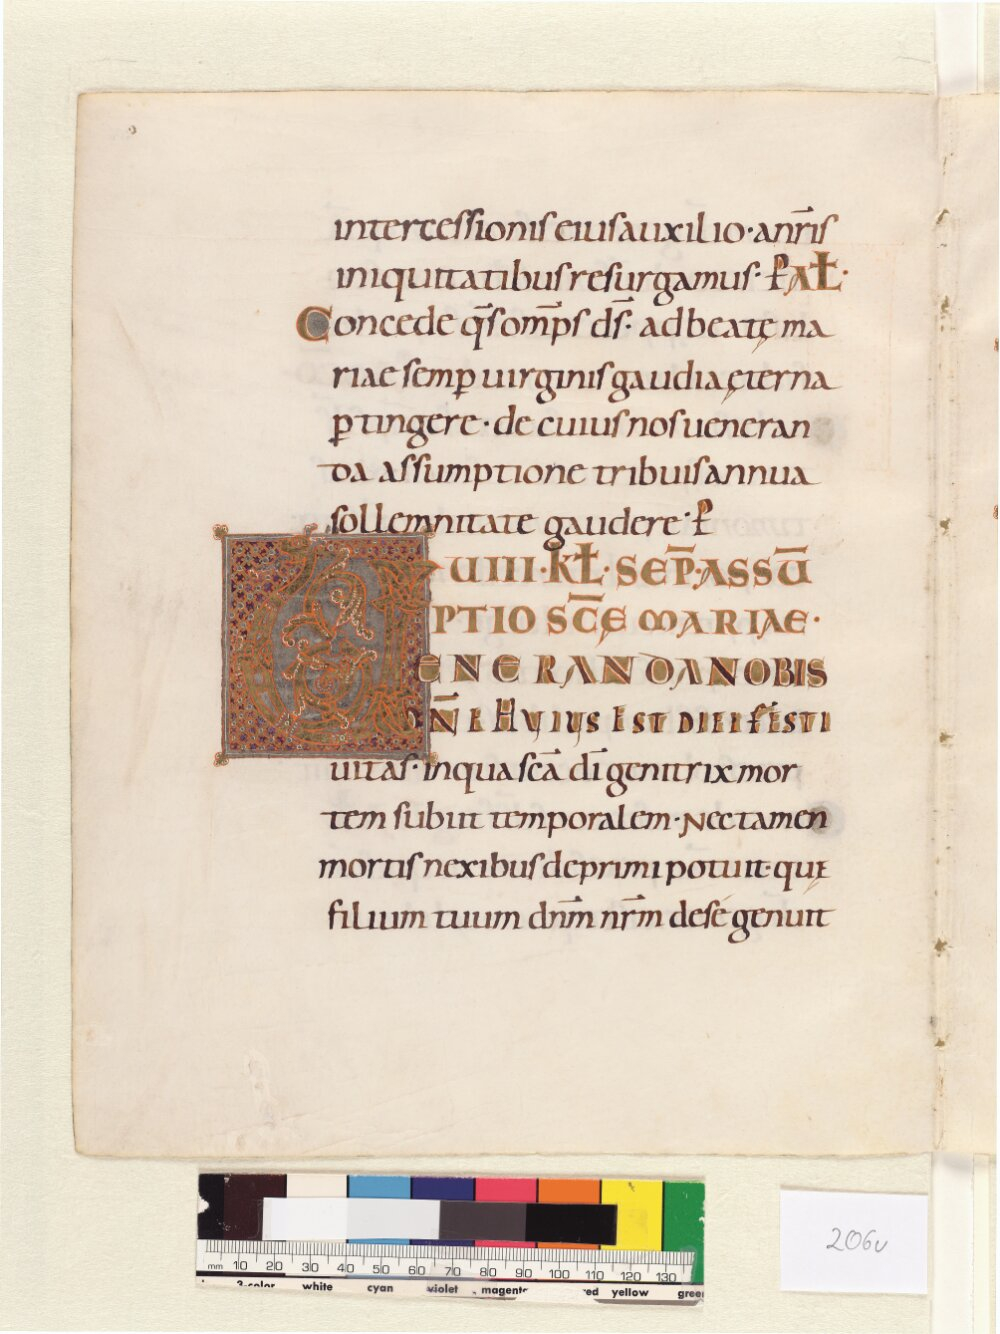 intercessionis eius auxilio · a nr̄is
iniquitatibus resurgamus · P̄ AL̄ ·
Concede q̄s omp̄s ds̄ · ad beatę ma
riae semp̱ uirginis gaudia ęterna
p̱tingere · de cuius nos ueneran
da assumptione tribuis annua
sollemnitate gaudere · P̄
UIIII · KL̄ · SEP̄ · ASSŪ
PTIO SC̄E MARIAE ·
VENERANDA NOBIS
DN̄E HUIUS EST DIEI FESTI
uitas · in qua scā dī genitrix mor
tem subiit temporalem · Nec tamen
mortis nexibus deprimi potuit · quę
filium tuum dnm̄ nr̄m de se genuit
mm 10 20 30 40 50 60 70 80 90 100 110 120 130
3-color white cyan violet magenta red yellow green
206v